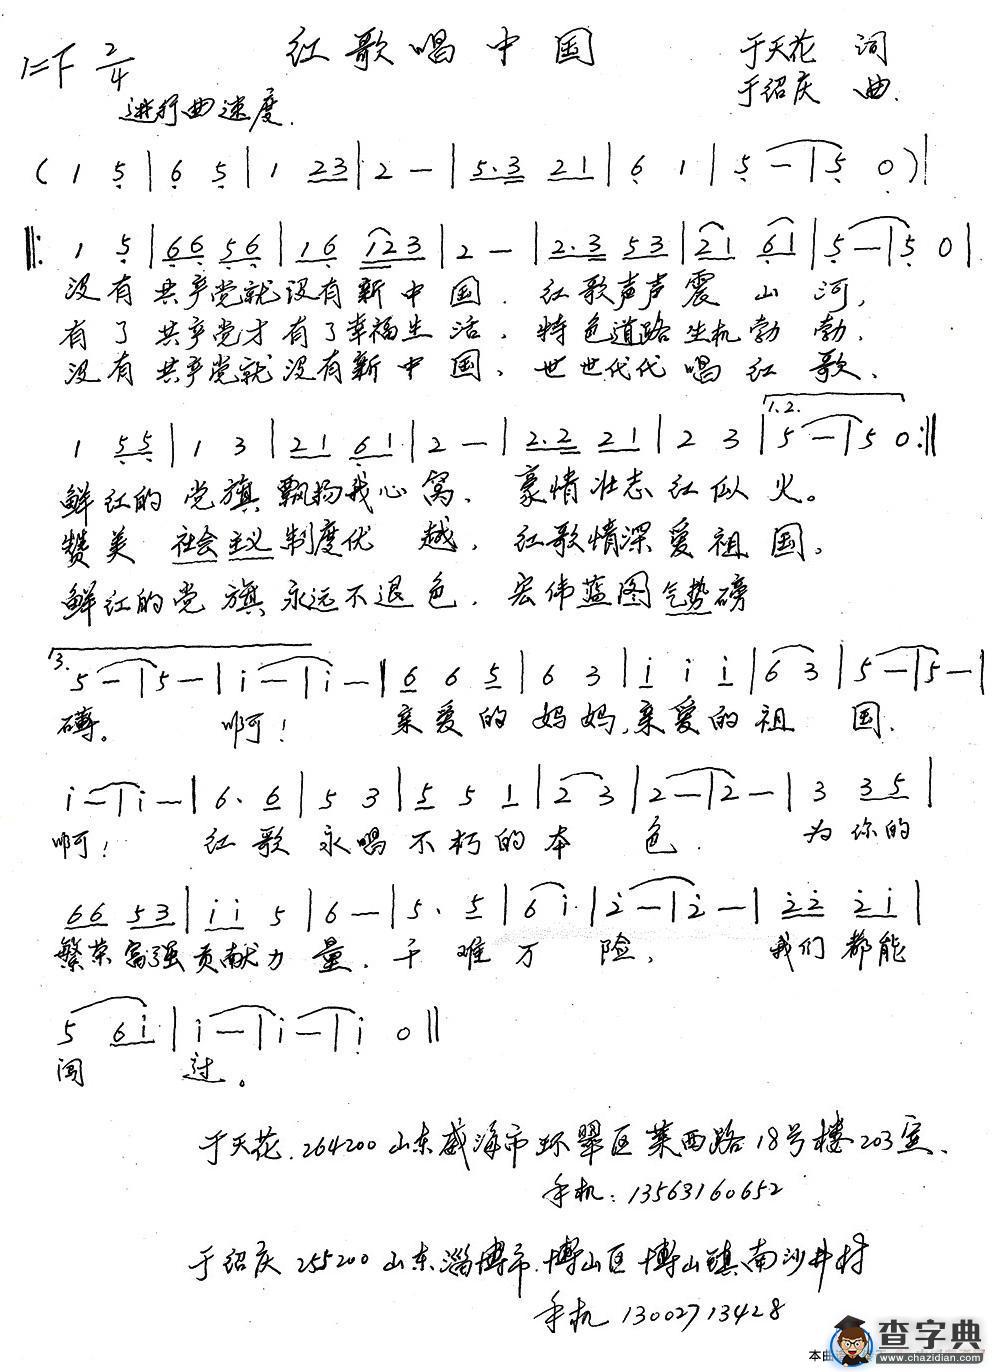 红歌唱中国
1=F 2/4
于天花 词
进行曲速度.
于绍庆 曲.
(1 5|6 5|1 23|2 —|5.3 21|6 1|5 —|5 0)|
‖: 1 5|66 56|16 123|2 —|2.3 53|21 61|5 —|5 0|
没有 共产党就没有新中国. 红歌声声震山河,
有了共产党才有了幸福生活, 特色道路生机勃勃.
没有共产党就没有新中国, 世世代代唱红歌,
1.2.
1 55|1 3|21 61|2 —|2.2 21|2 3|5 —|5 0:‖
鲜红的党旗飘扬我心窝, 豪情壮志红似火。
赞美社会主义制度优越, 红歌情深爱祖国,
鲜红的党旗永远不退色, 宏伟蓝图气势磅
3.
5 —|5 —|i —|i —|6 6 5|6 3|i i i|6 3|5 —|5 —|
礴。啊! 亲爱的妈妈,亲爱的祖国.
i —|i —|6. 6|5 3|5 5 1|2 3|2 —|2 —|3 35|
啊! 红歌永唱不朽的本色. 为你的
66 53|i i 5|6 —|5. 5|6 i|2 —|2 —|22 2i|
繁荣富强贡献力量, 千难万险, 我们都能
5 6i|i —|i —|i 0‖
闯过。
于天花.264200山东威海市环翠区莱西路18号楼203室.
手机:13563160652
于绍庆 255200山东淄博市.博山区博山镇南沙井村
手机 13002713428
查字典
www.chazidian.com